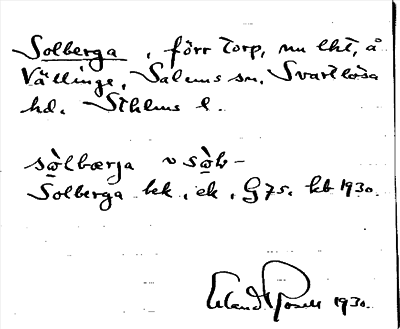 Solberga, förr torp, nu lht, å
Vällinge, Salems sn. Svartlösa
hd. Sthlms l.
sò̲lbærja v sò̲b-
Solberga hk. ek. G75. kb 1930.
Erland Rosell 1930.